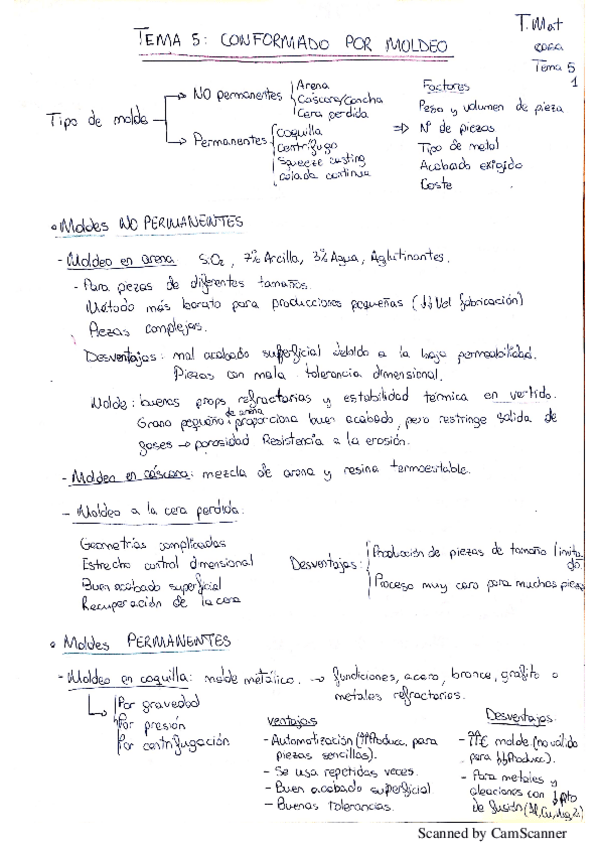 TEMA 5: CONFORMADO POR MOLDEO
T. Mat
cara
Tema 5
1
Tipo de molde
NO permanentes
Arena
Cáscara/Concha
Cera perdida
Permanentes
Coquilla
Centrífugo
Squeeze casting
Colada continua
=>
Factores
Peso y volumen de pieza
Nº de piezas
Tipo de metal
Acabado exigido
Coste
• Moldes NO PERMANENTES
- Moldeo en arena SiO2, 7% Arcilla, 3% Agua, Aglutinantes.
- Para piezas de diferentes tamaños.
Método más barato para producciones pequeñas (↓↓Vel fabricación)
Piezas complejas.
Desventajas: mal acabado superficial debido a la baja permeabilidad.
Piezas con mala tolerancia dimensional.
Molde: buenas props refractarias y estabilidad térmica en vertido.
Grano pequeño de arena proporciona buen acabado, pero restringe salida de
gases → porosidad Resistencia a la erosión.
- Moldeo en cáscara: mezcla de arena y resina termoestable.
- Moldeo a la cera perdida:
Geometrías complicadas
Estrecho control dimensional
Buen acabado superficial
Recuperación de la cera
Desventajas:
Producción de piezas de tamaño limita-
do.
Proceso muy caro para muchas piezas
• Moldes PERMANENTES
- Moldeo en coquilla: molde metálico. → fundiciones, acero, bronce, grafito o
metales refractarios.
Por gravedad
Por presión
Por centrifugación
Ventajas
- Automatización (↑↑Producc. para
piezas sencillas).
- Se usa repetidas veces.
- Buen acabado superficial
- Buenas tolerancias.
Desventajas
- ↑↑€ molde (no válido
para ↓↓Producc).
- Para metales y
aleaciones con ↓pto
de fusión (Al, Cu, Mg, Zn)
Scanned by CamScanner